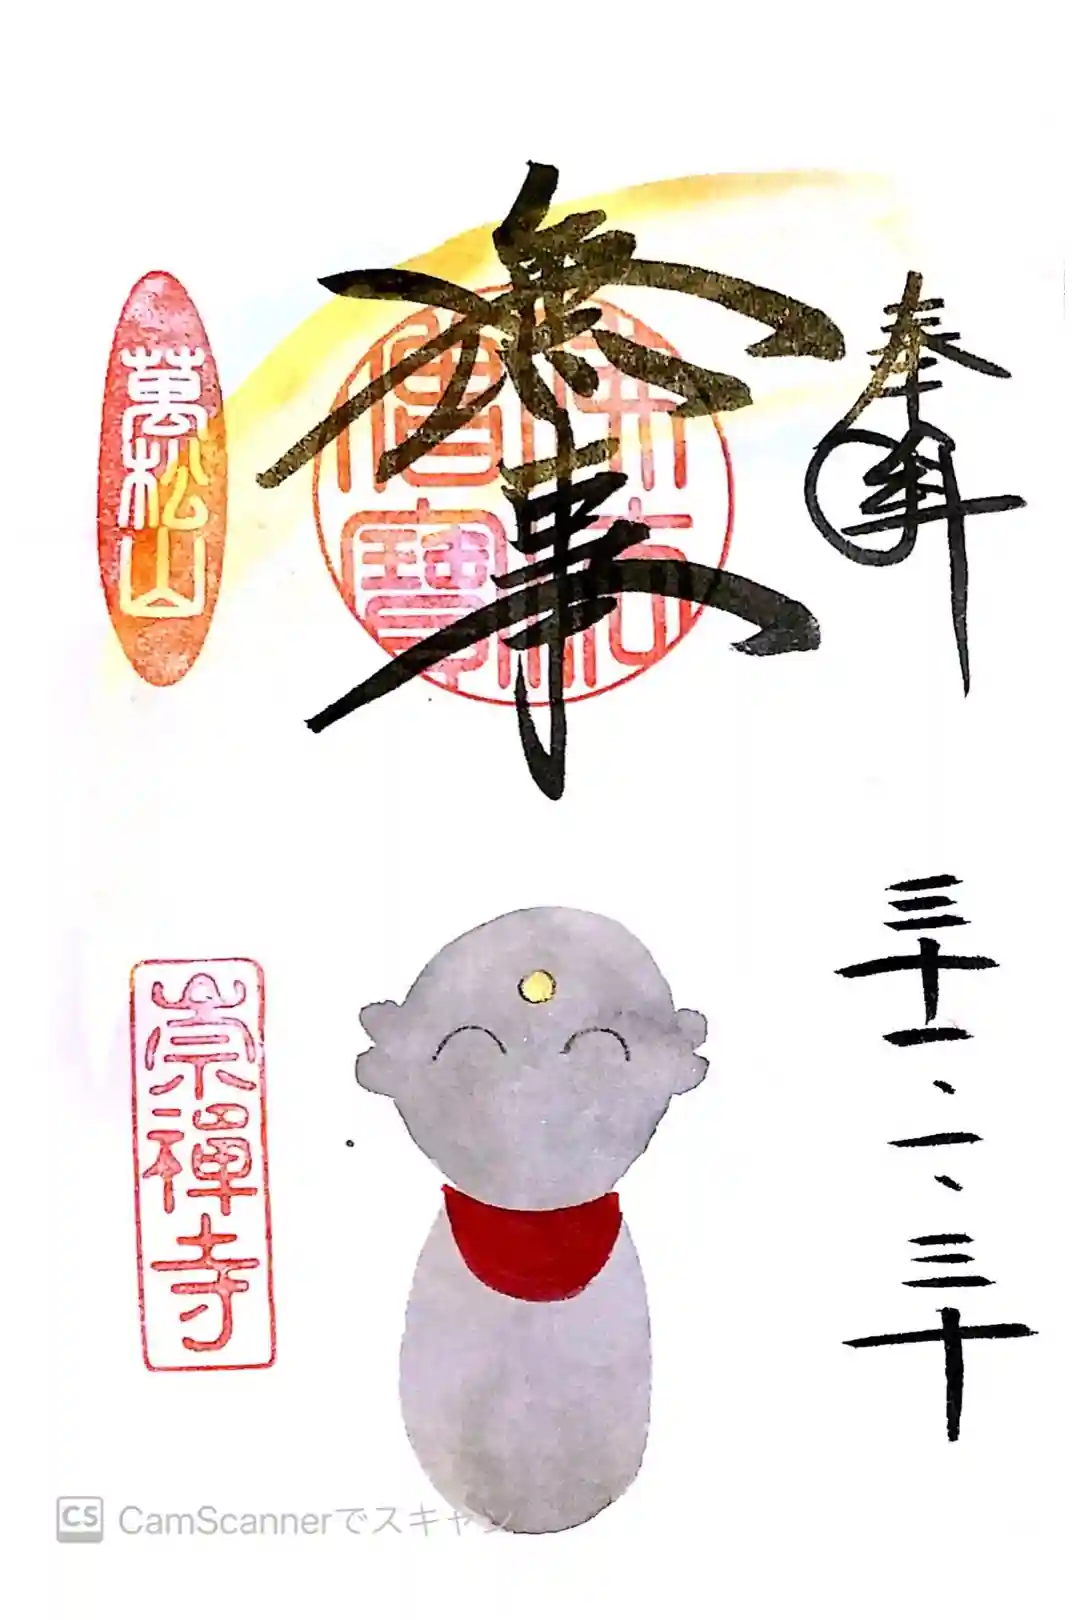 奉拝
三十一、一、三十
無事
佛法僧寶
萬松山
崇禪寺
CS CamScannerでスキャン